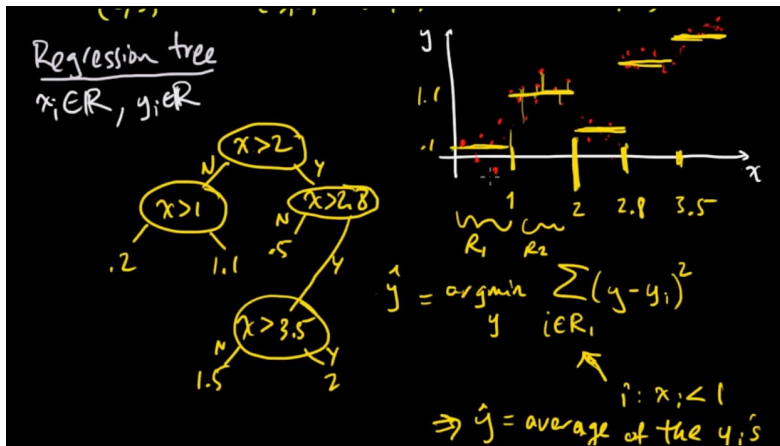 Regression tree
xᵢ∈ℝ, yᵢ∈ℝ
x>2
N Y
x>1
x>2.8
.2 1.1
N
.5
Y
x>3.5
N Y
1.5 2
y
1.1
.1
x
1 2 2.8 3.5
R₁ R₂
ŷ = argmin Σ (y-yᵢ)²
y i∈R₁
i: xᵢ<1
⇒ ŷ = average of the yᵢ's